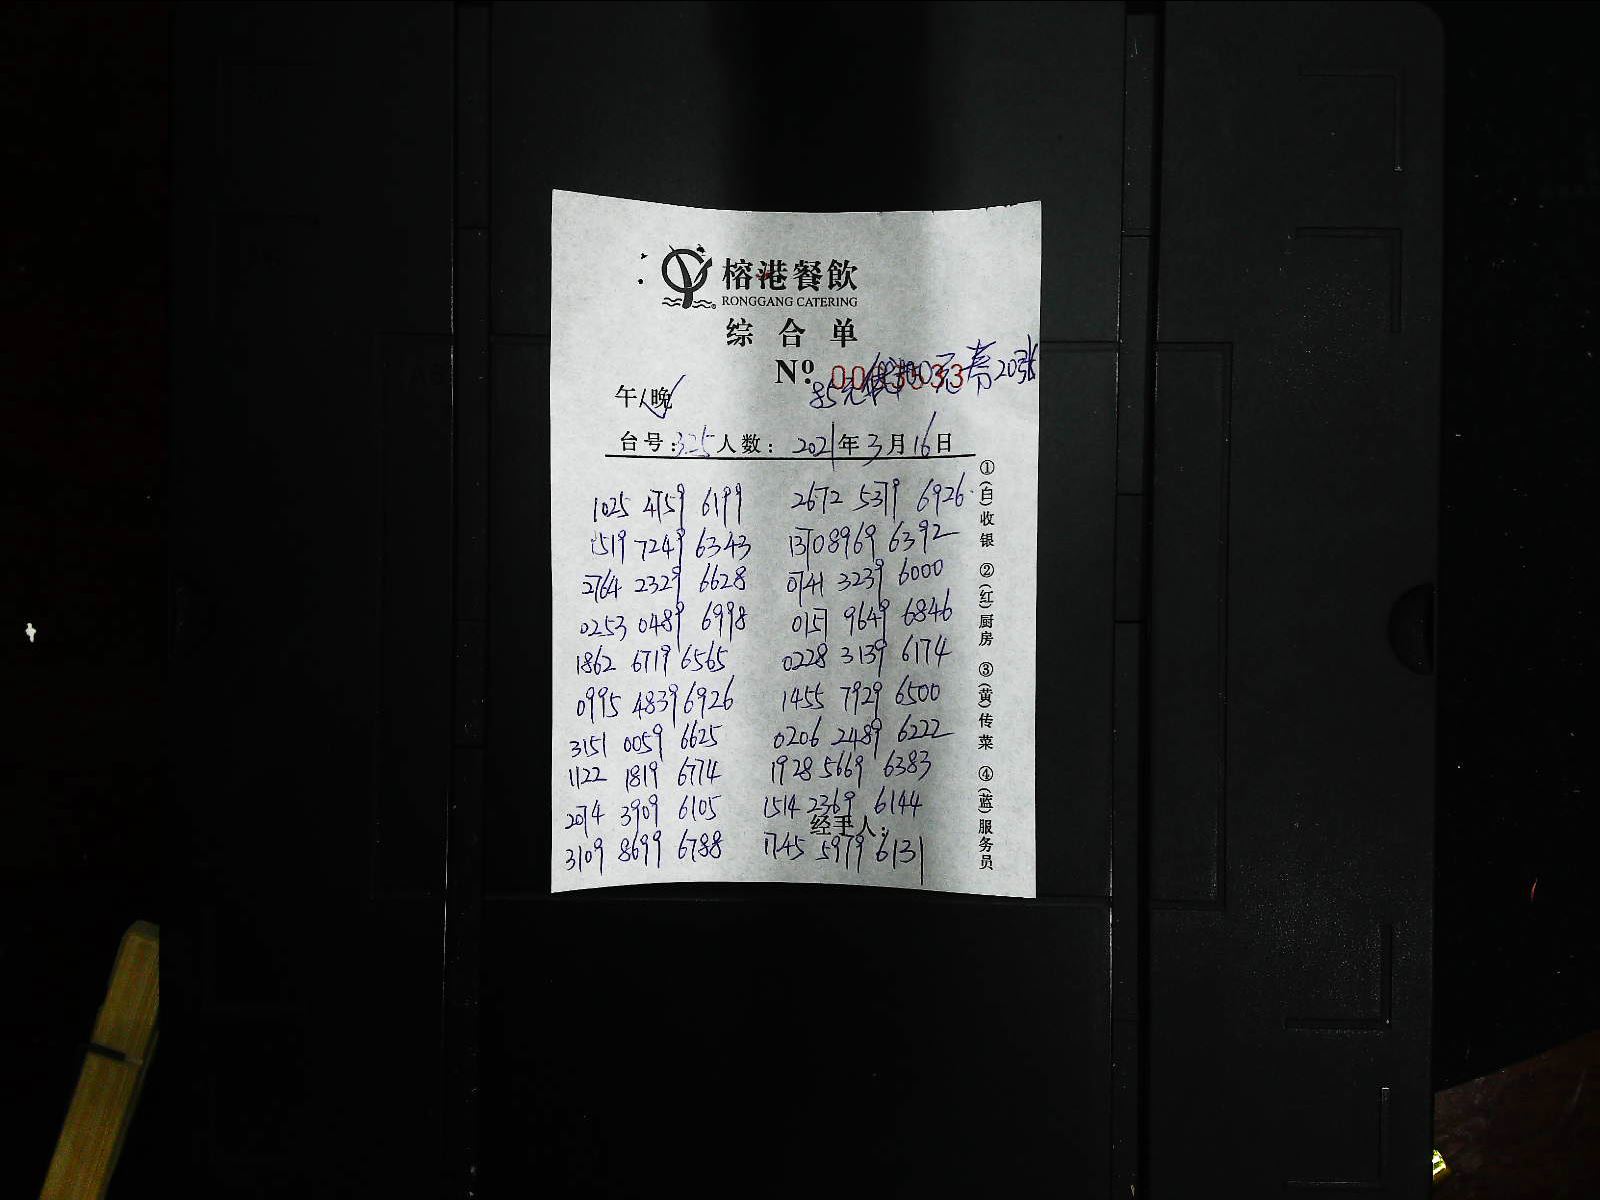 榕港餐飲
RONGGANG CATERING
综合单
Nº
85元 100元券20张
午/晚✓
台号:325人数: 2021年3月16日
1025 4759 6199 2672 5379 6926
1519 7249 6343 1370 8969 6392
2764 2329 6628 0741 3239 6000
0253 0489 6998 0157 9649 6846
1862 6719 6565 0228 3139 6174
0995 4839 6926 1455 7929 6500
3151 0059 6625 0206 2489 6222
1122 1819 6774 1928 5669 6383
2074 3909 6105 1514 2369 6144
经手人:
3109 8699 6788 1745 5979 6131
①(白)收银 ②(红)厨房 ③(黄)传菜 ④(蓝)服务员